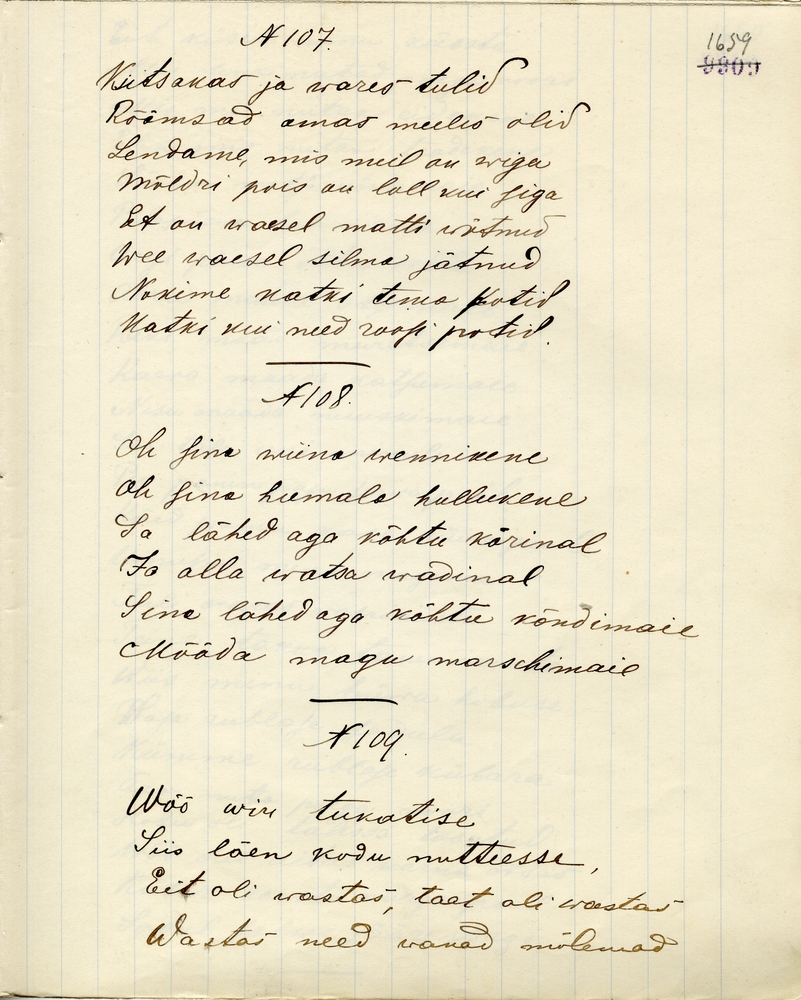 1659
9909
N 107.
Kiitsakas ja wares tulid
Rõõmsad omas meeles olid
Lendame, mis meil on wiga
Möldri pois on loll kui siga
Et on waesel matti wõtnud
Wee waesel silma jätnud
Nokime katki tema kotid
Katki kui need roosi potid.
N 108.
Oh sina wiina wennikene
Oh sina humala hullukene
Sa lähed aga kõhtu kõrinal
Ja alla watsa wadinal
Sina lähed aga kõhtu kõndimaie
Mööda magu marschimaie
N 109.
Wöö win tukatise
Siis läen kodu nuttessa,
Eit oli wastas, taet oli wastas
Wastas need wanad mõlemad